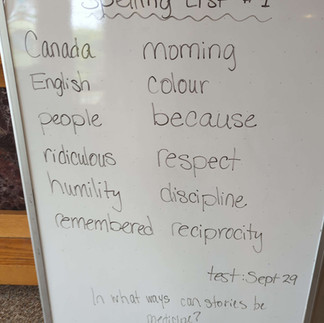 Spelling List #1
Canada morning
English colour
people because
ridiculous respect
humility discipline
remembered reciprocity
test: Sept 29
In what ways can stories be
medicine?